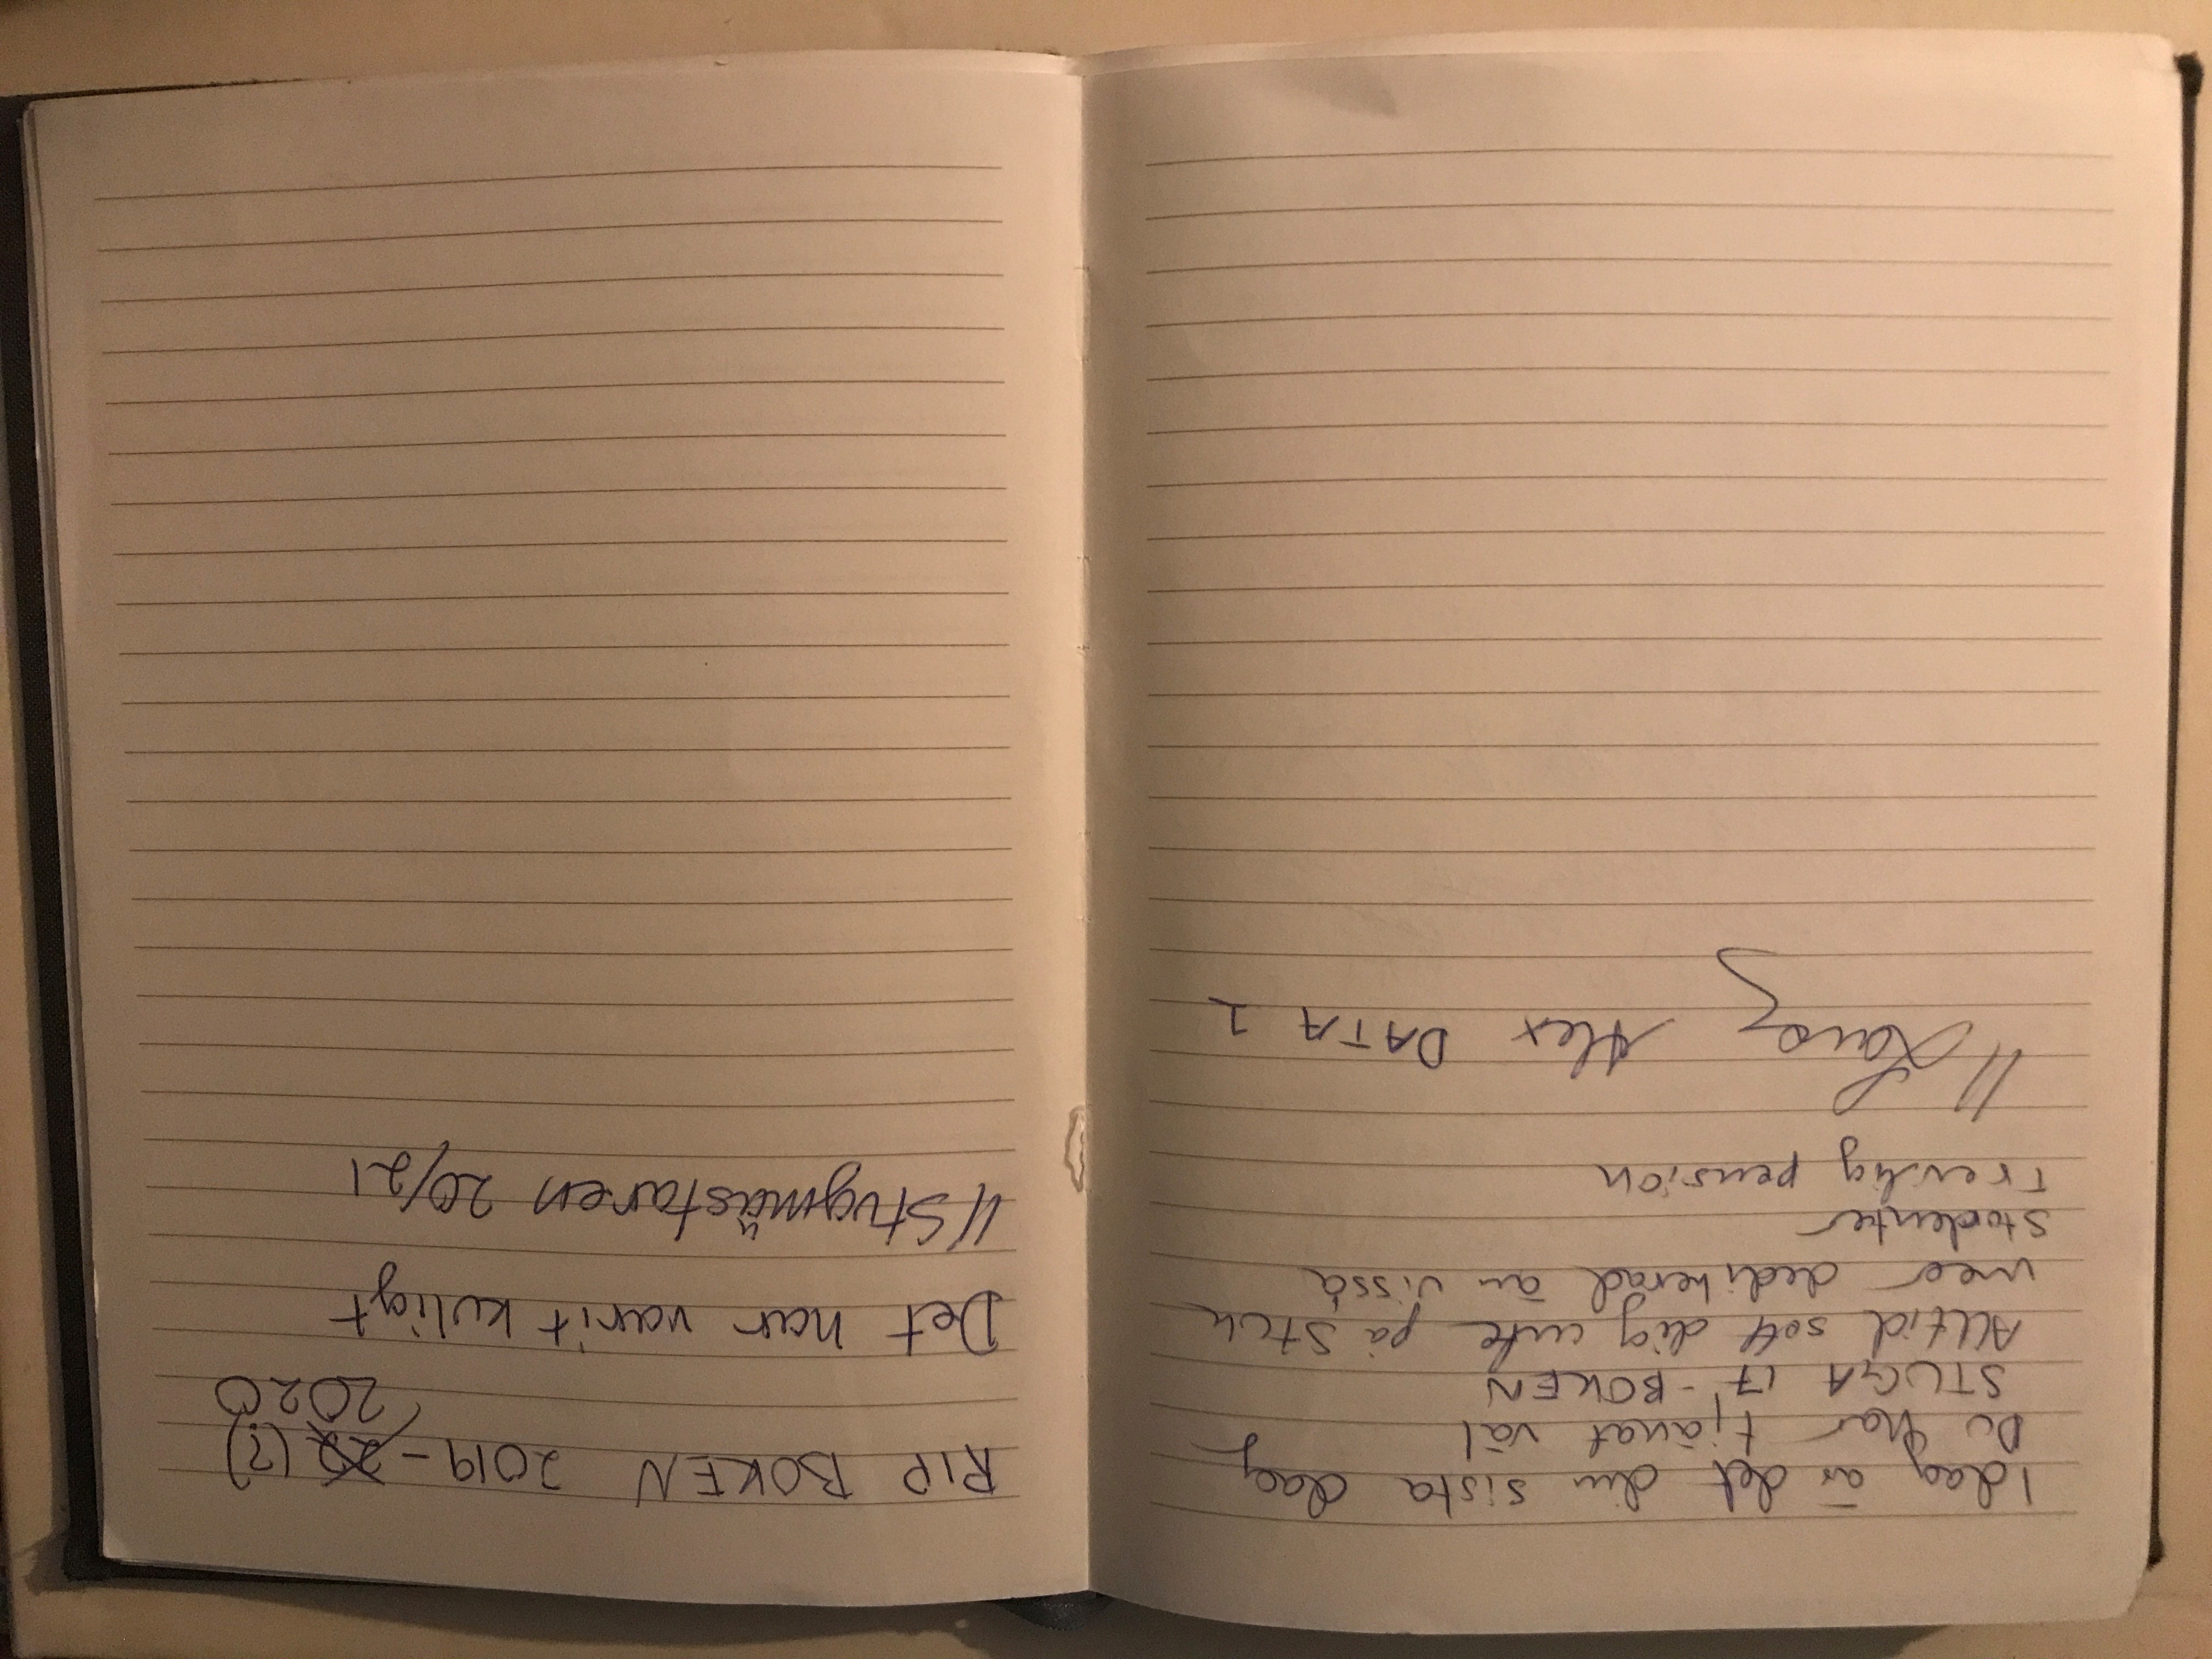 Idag är det din sista dag
Du har tjänat väl
STUGA 17-BOKEN
Alltid sett dig inte på
mer dedikerad än vissa
studenter
Trevlig pension
// Alex DATA 1
RIP BOKEN 2019- (?)
2020
Det har varit kuligt
//Stugmästaren 20/21